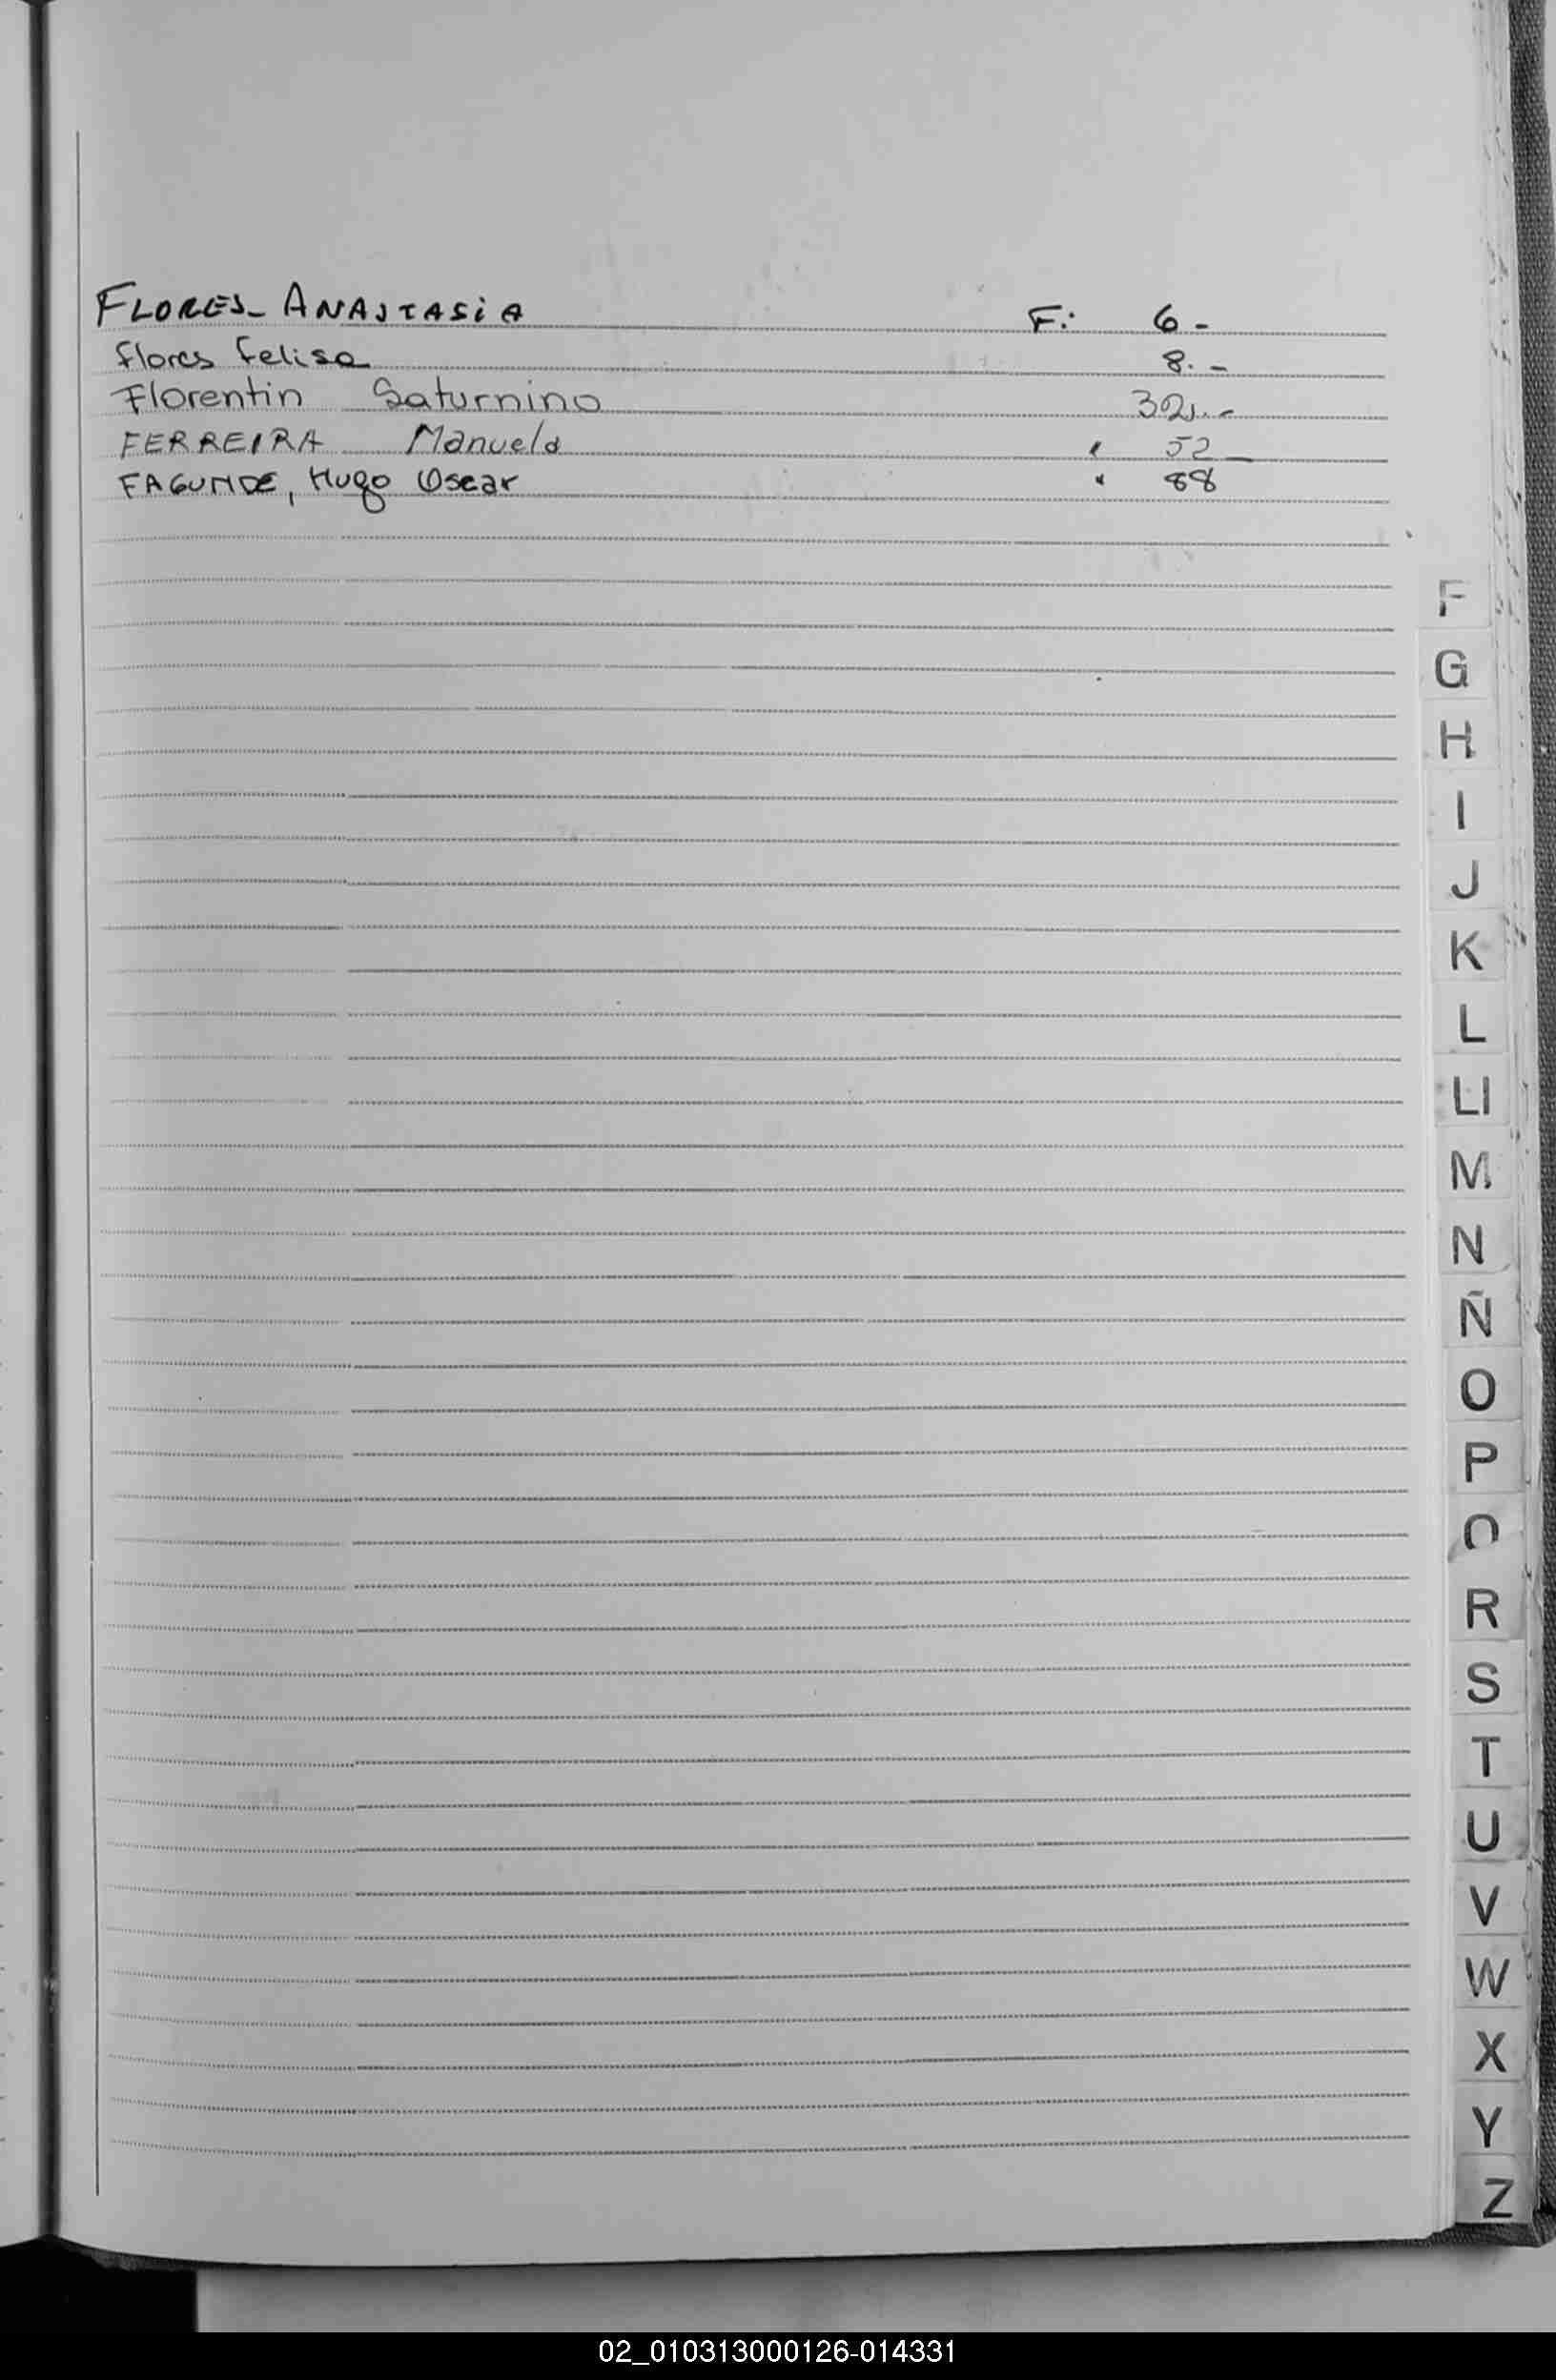 FLORES- ANASTASIA F: 6-
Flores Felisa 8.-
Florentin Saturnino 32.-
FERREIRA Manuela " 52_
FAGUNDE, Hugo Oscar " 88
F
G
H
I
J
K
L
Ll
M
N
Ñ
O
P
Q
R
S
T
U
V
W
X
Y
Z
02_010313000126-014331